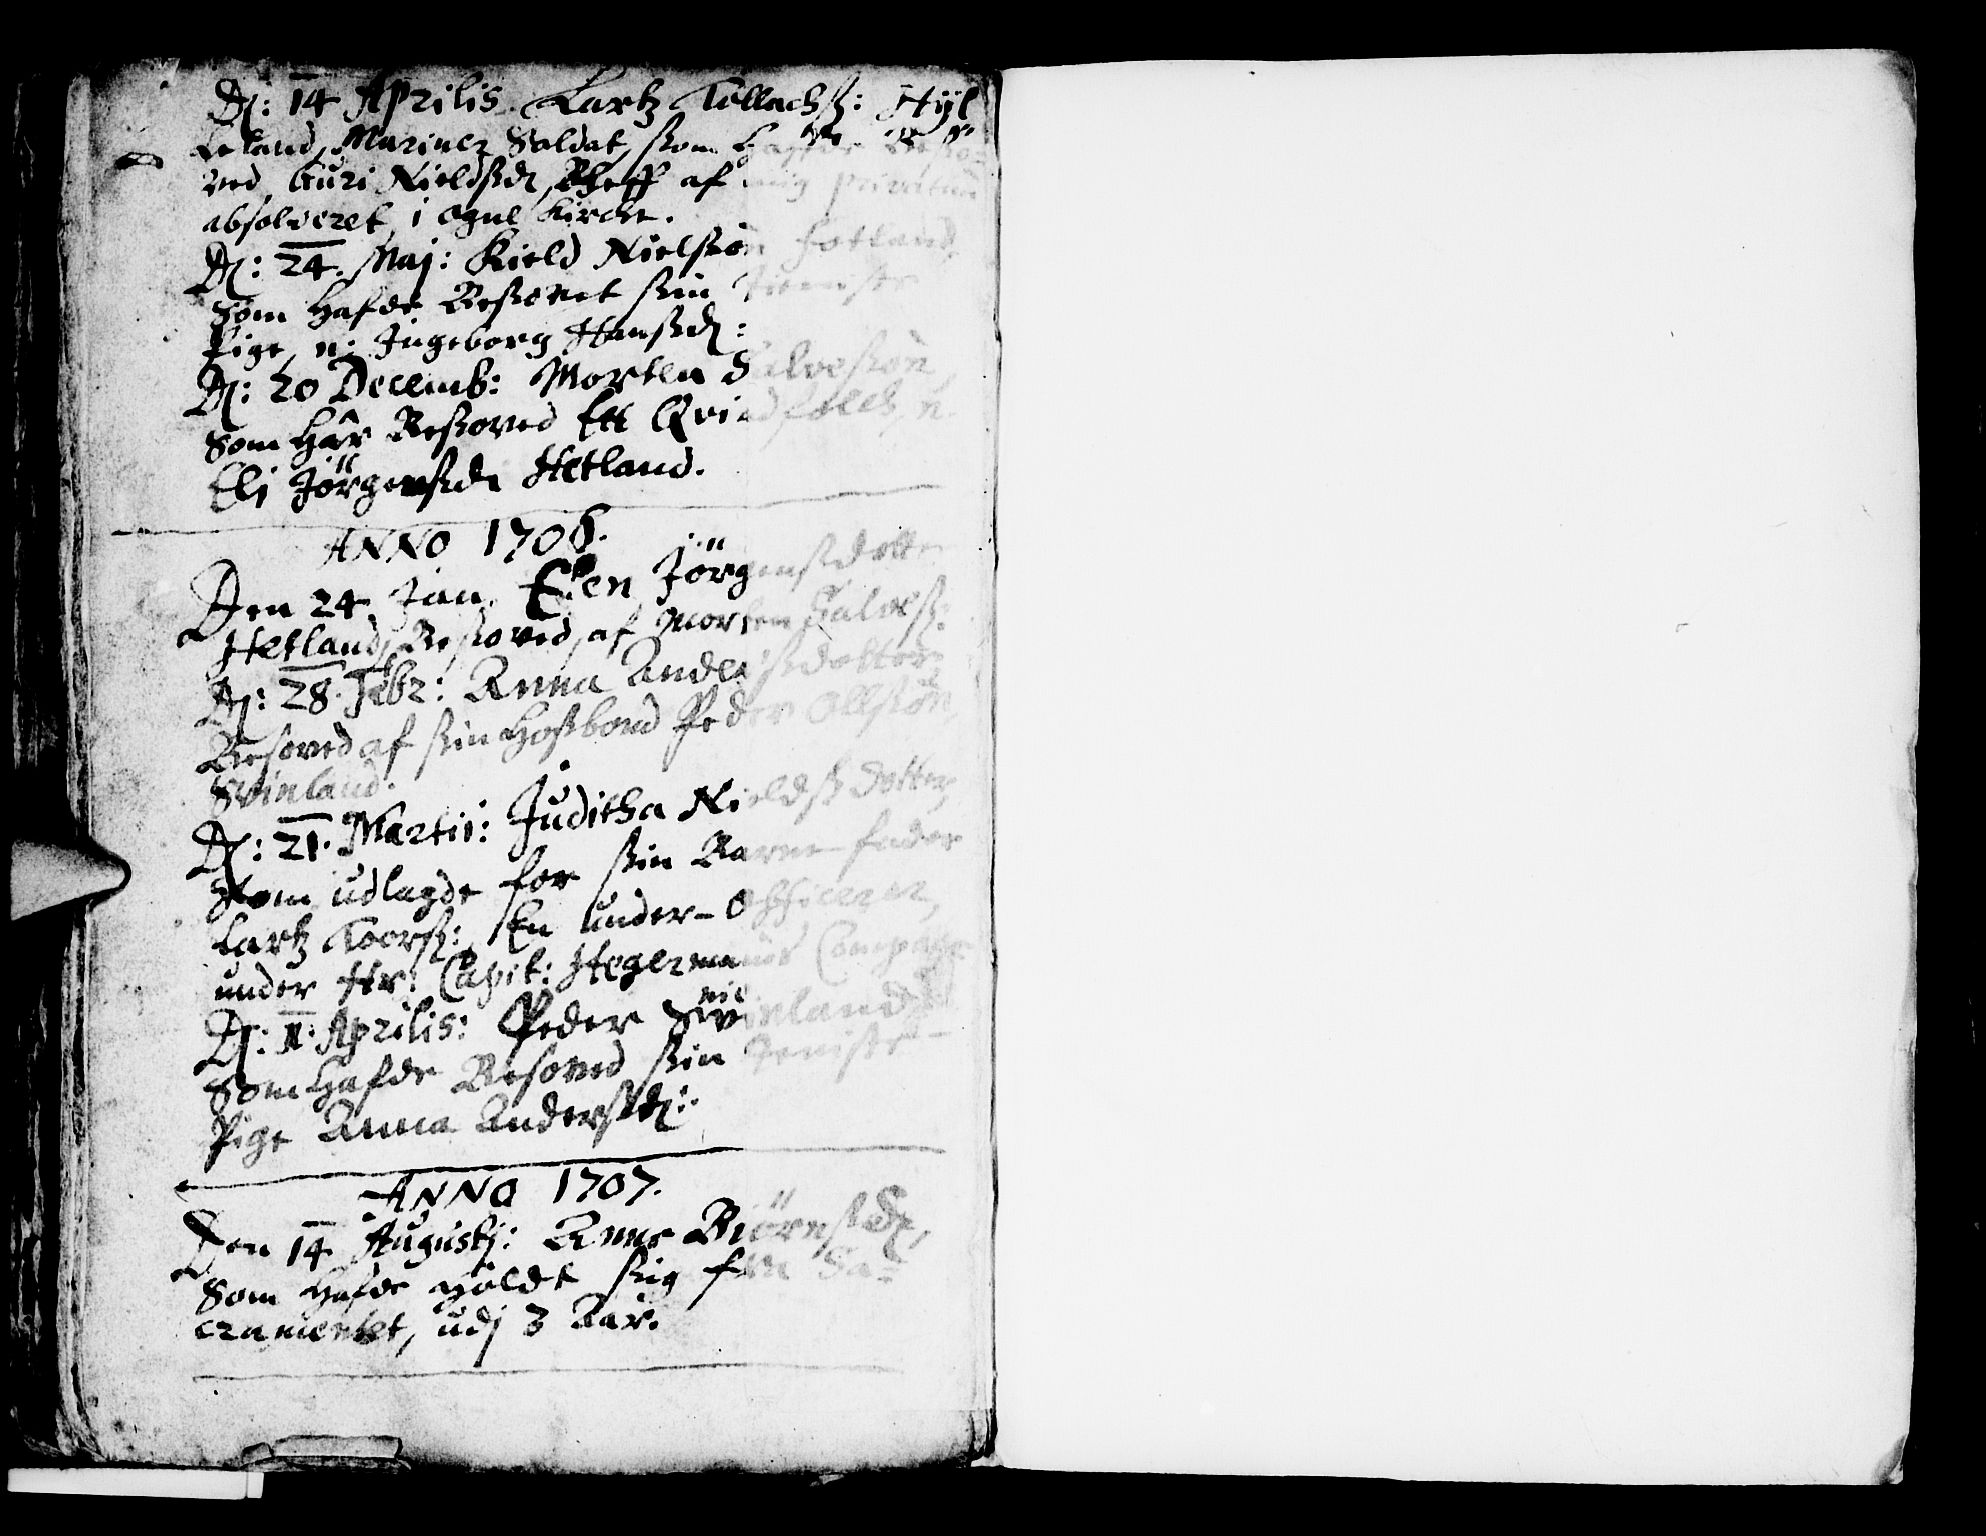 D: 14 Aprilis. Lartz Tollachß: Hÿl
leland, Marinez Soldat, som hafde Beso=
ved Guri Nieldsd, bleff af mig privatim
absolveret, i Ogne Kircke.
D: 24. Maj: Kield Nielsøn Fotland,
Som hafde Besovet sin Tieniste
Pige, n: Ingeborg Hansd:
D: 20 Decemb: Morten Salvesøn,
Som hâr Besoved Ett Qvindfolck n.
Eli Jörgensd: Hetland.
ANNO 1706.
Den 24 Jan. Elen Jörgensdotter
Hetland, Besoved, af Morten Salveß:
D: 28. Febr: Anna Andersdotter
Besoved af sin Hosbond Peder Ollsøn
Svinland.
D: 21. Martii: Juditha Nieldsdotter,
Som udlagde for sin Barne-fader
Lartz Toorß:, En under-Officerer,
under Hr: Capit: Hegermans Compagn:
D: 11. Aprilis: Peder Svinland
Som hafde Besoved sin Teniste-
Pige Anna Andersd:
ANNO 1707.
Den 14 Augustj: Anne Biörnsd,
Som hafde holdt sig fra Sa=
cramentet, udj 3 Aar.